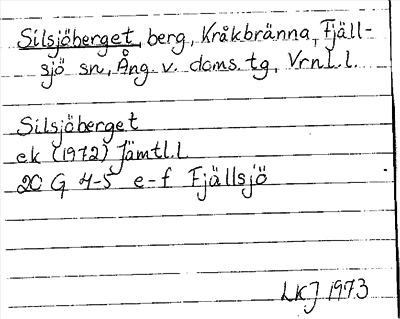 Silsjöberget, berg, Kråkbränna, Fjäll-
sjö sn, Ång. v. doms. tg, Vrnl. l.
Silsjöberget
ek (1972) Jämtl. l
20 G 4-5 e-f Fjällsjö
LKJ 1973